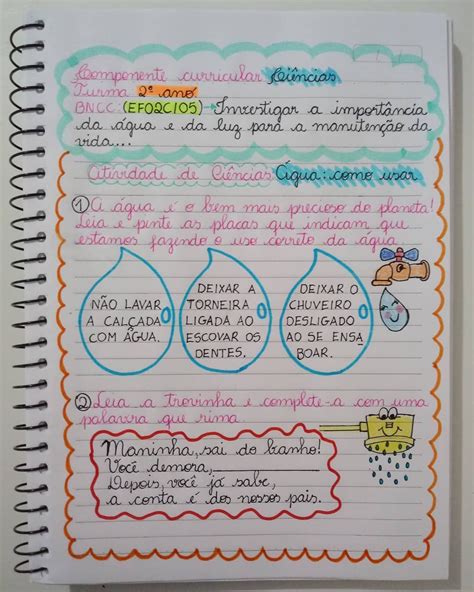 Componente curricular Ciências
Turma 2º ano
BNCC (EF02CI05) → Investigar a importância
da água e da luz para a manutenção da
vida...
Atividade de Ciências: Água: como usar
1 A água é o bem mais precioso do planeta!
Leia e pinte as placas que indicam que
estamos fazendo o uso correto da água
NÃO LAVAR
A CALÇADA
COM ÁGUA.
DEIXAR A
TORNEIRA
LIGADA AO
ESCOVAR OS
DENTES.
DEIXAR O
CHUVEIRO
DESLIGADO
AO SE ENSA
BOAR.
2 Leia a trovinha e complete-a com uma
palavra que rima
Maninha, sai do banho!
Você demora, ____________
Depois, você já sabe,
a conta é dos nossos pais.